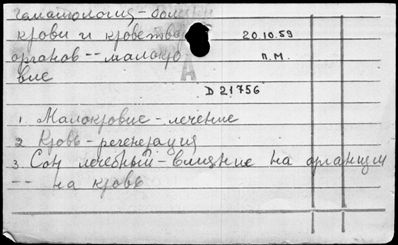 гематология - бол
крови и кроветво 20.10.59
органов -- малокро п.м.
вие
D 21756
1. Малокровие - лечение
2. Кровь - регенерация
3. Сон лечебный - влияние на организм
-- на кровь